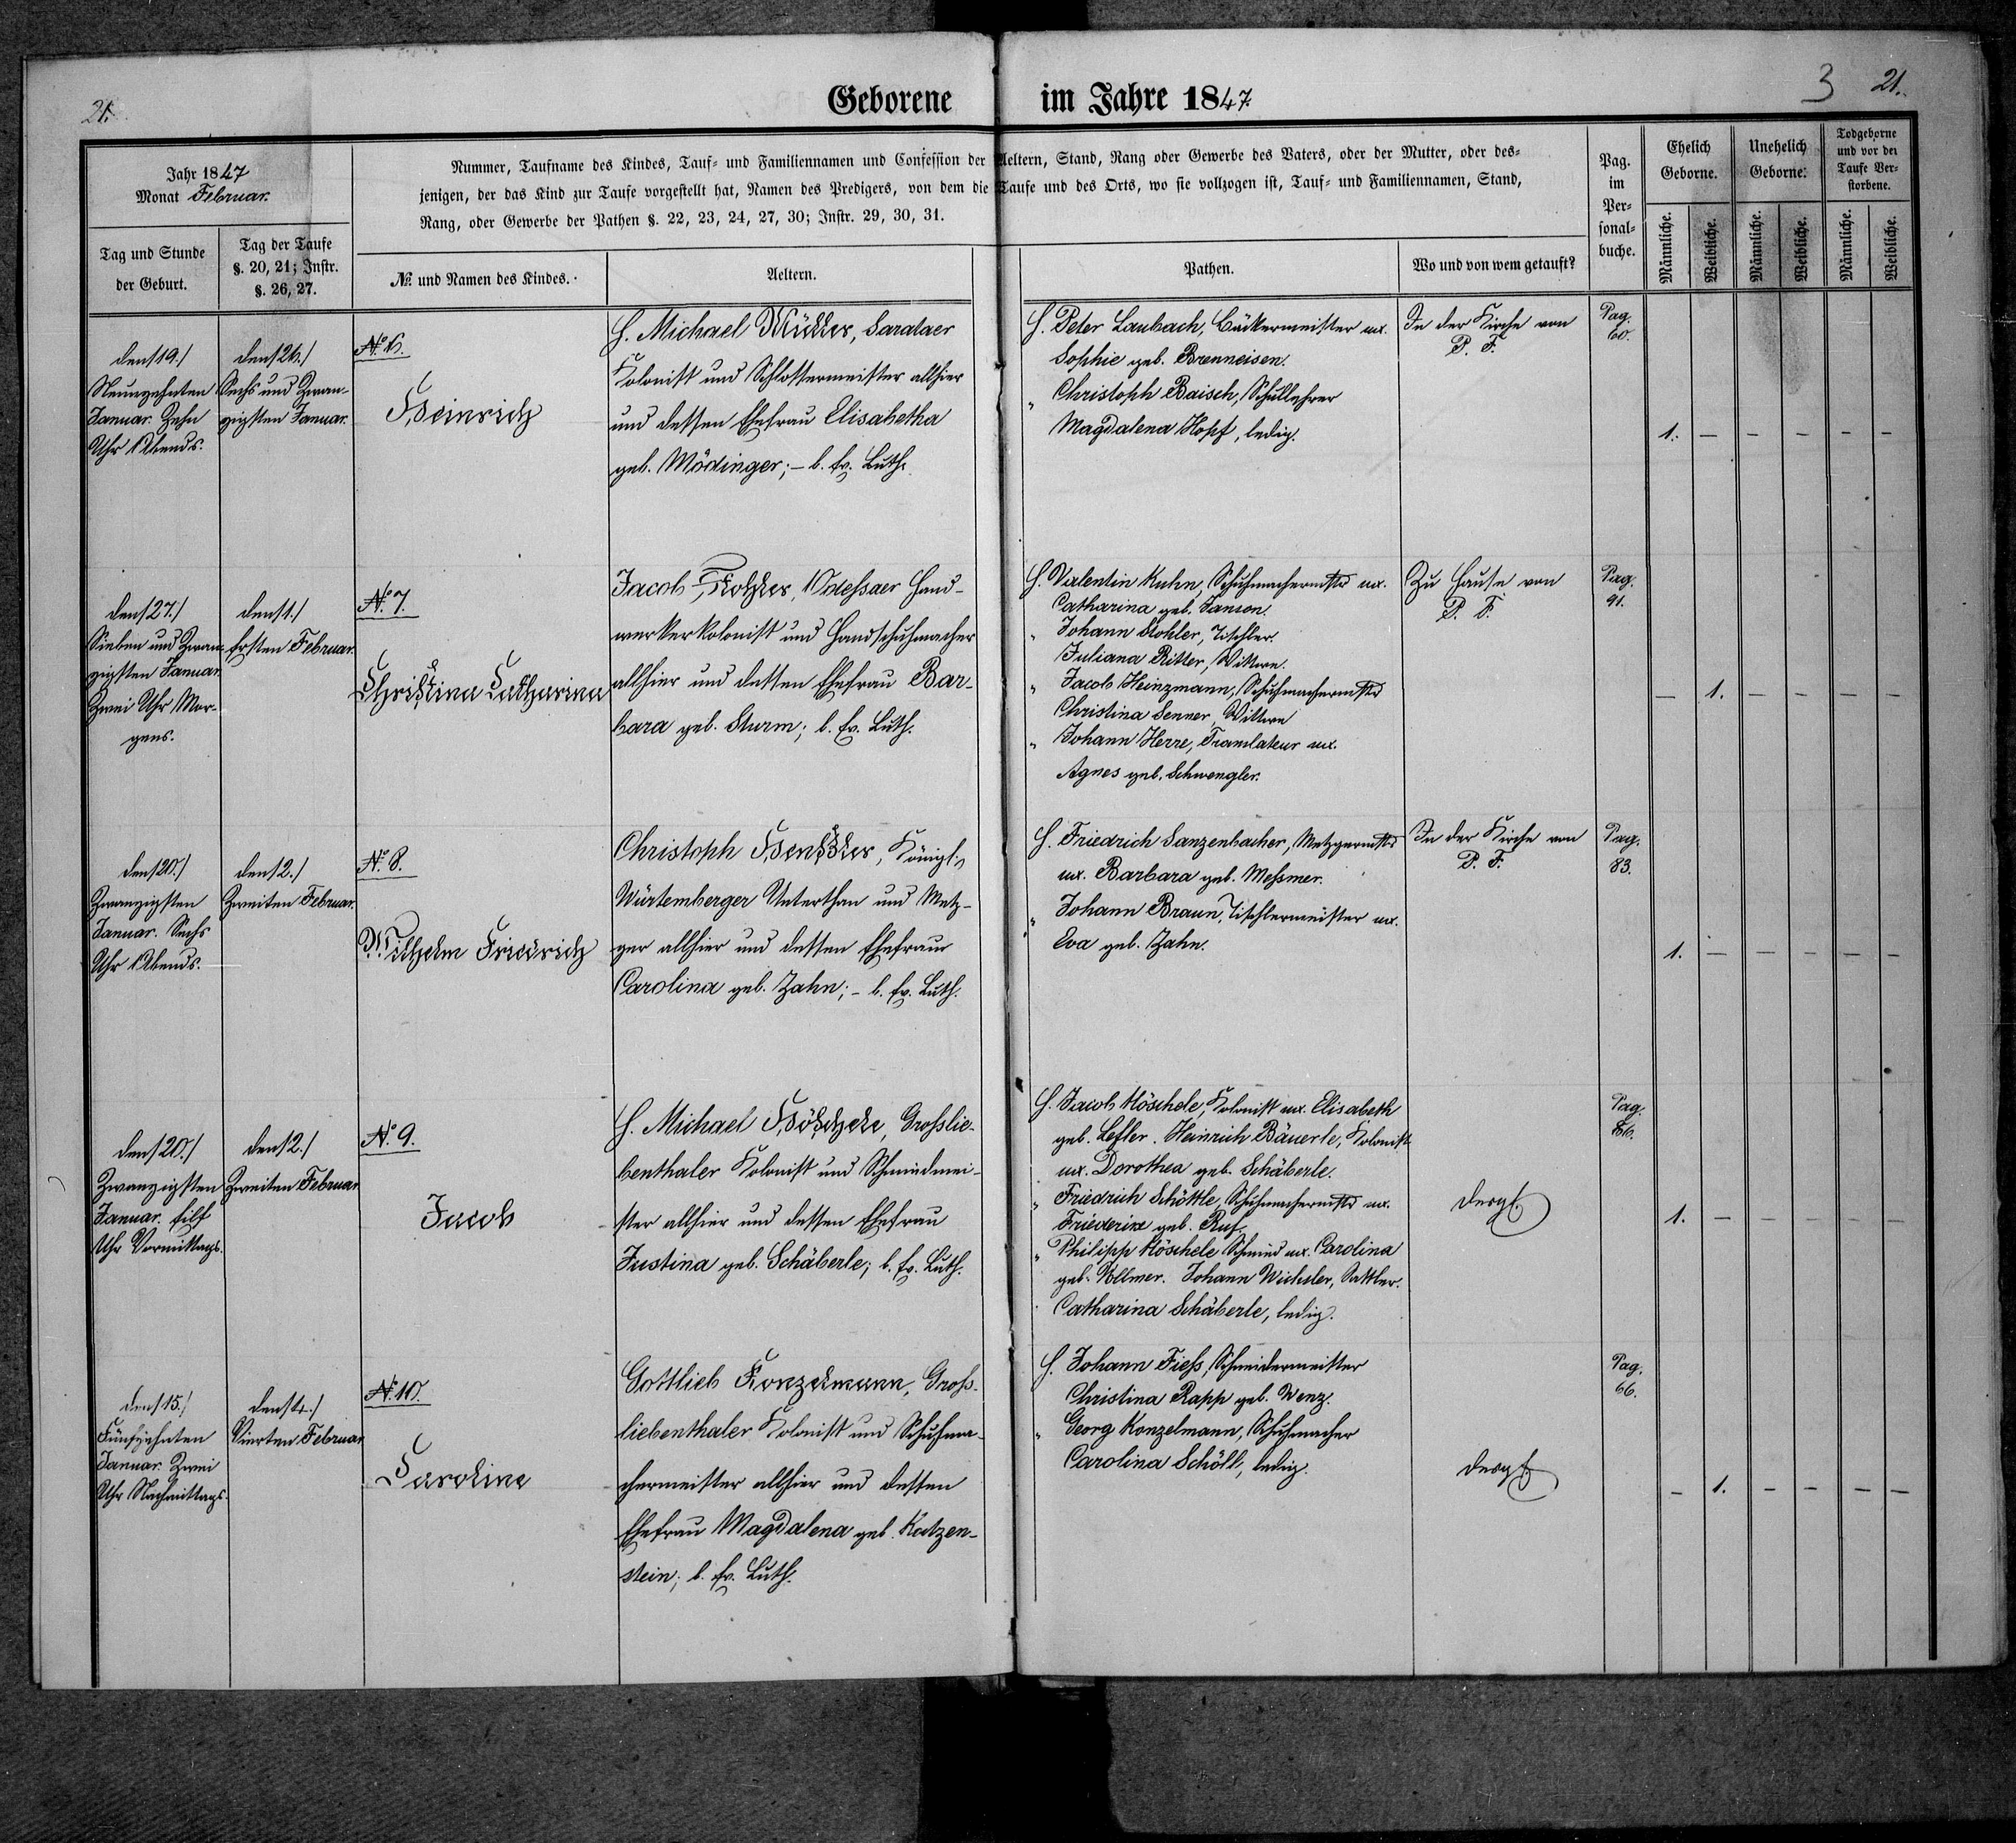 21.
Geborene im Jahre 1847.
3 21.
Jahr 1847
Monat Februar.
Tag und Stunde
der Geburt.
Tag der Taufe
§. 20, 21; Instr.
§. 26, 27.
Nummer, Taufname des Kindes, Tauf- und Familiennamen und Confession der Aeltern, Stand, Rang oder Gewerbe des Vaters, oder der Mutter, oder des-
jenigen, der das Kind zur Taufe vorgestellt hat, Namen des Predigers, von dem die Taufe und des Orts, wo sie vollzogen ist, Tauf- und Familiennamen, Stand,
Rang, oder Gewerbe der Pathen §. 22, 23, 24, 27, 30; Instr. 29, 30, 31.
№ und Namen des Kindes.
Aeltern.
Pathen.
Wo und von wem getauft?
Pag.
im
Per-
sonal-
buche.
Ehelich
Geborne.
Unehelich
Geborne.
Todgeborne
und vor der
Taufe Ver-
storbene.
Männliche.
Weibliche.
Männliche.
Weibliche.
Männliche.
Weibliche.
den 19./
Neunzehnten
Januar. Zehn
Uhr Abends.
den 26./
Sechs und Zwan-
zigsten Januar.
No. 6.
Heinrich
H. Michael Müller, Sarataer
Kolonist und Schlossermeister allhier
und dessen Ehefrau Elisabetha
geb. Mödinger; – b. Ev. Luth.
H. Peter Laubach, Bäckermeister ux.
Sophie geb. Brenneisen.
" Christoph Baisch, Schullehrer
Magdalena Hopf, ledig.
In der Kirche von
P. F.
Pag.
60.
1. – – – – –
den 27./
Sieben und Zwan-
zigsten Januar.
Zwei Uhr Mor-
gens.
den 1./
Ersten Februar.
No. 7.
Christina Catharina
Jacob Kohler, Odessaer Hand-
werkerkolonist und Handschuhmacher
allhier und dessen Ehefrau Bar-
bara geb. Sturm; b. Ev. Luth.
H. Valentin Kuhn, Schuhmachermstr ux.
Catharina geb. Janson.
" Johann Kohler, Tischler.
Juliana Ritter, Wittwe.
" Jacob Heinzmann, Schuhmachermstr
Christina Senner, Wittwe
" Johann Herre, Translateur ux.
Agnes geb. Schwengler.
Zu Hause von
P. F.
Pag.
91.
– 1. – – – –
den 20./
Zwanzigsten
Januar. Sechs
Uhr Abends.
den 2./
Zweiten Februar.
No. 8.
Wilhelm Friedrich
Christoph Henßler, Königl.
Würtemberger Unterthan und Metz-
ger allhier und dessen Ehefrau
Carolina geb. Zahn; – b. Ev. Luth.
H. Friedrich Sanzenbacher, Metzgermstr
ux. Barbara geb. Messmer.
" Johann Braun, Tischlermeister ux.
Eva geb. Zahn.
In der Kirche von
P. F.
Pag.
83.
1. – – – – –
den 20./
Zwanzigsten
Januar. Eilf
Uhr Vormittags.
den 2./
Zweiten Februar
No. 9.
Jacob
H. Michael Höschele, Grosslie-
benthaler Kolonist und Schmidmei-
ster allhier und dessen Ehefrau
Justina geb. Schäberle; b. Ev. Luth.
H. Jacob Höschele, Kolonist ux. Elisabeth
geb. Lefler. Heinrich Bäuerle, Kolonist
ux. Dorothea geb. Schäberle.
" Friedrich Schöttle, Schuhmachermstr ux.
Friederike geb. Ruf.
" Philipp Höschele Schmied ux. Carolina
geb. Vollmer. Johann Wichsler, Sattler.
Catharina Schäberle, ledig.
desgl.
Pag.
1. – – – – –
den 15./
Fünfzehnten
Januar. Zwei
Uhr Nachmittags.
den 4./
Vierten Februar
No. 10.
Caroline
Gottlieb Konzelmann, Gross-
liebenthaler Kolonist und Schuhma-
chermeister allhier und dessen
Ehefrau Magdalena geb. Katzen-
stein; b. Ev. Luth.
H. Johann Fiess, Schneidermeister
Christina Rapp geb. Wenz.
" Georg Konzelmann, Schuhmacher
Carolina Schöll, ledig.
desgl.
Pag.
66.
– 1. – – – –